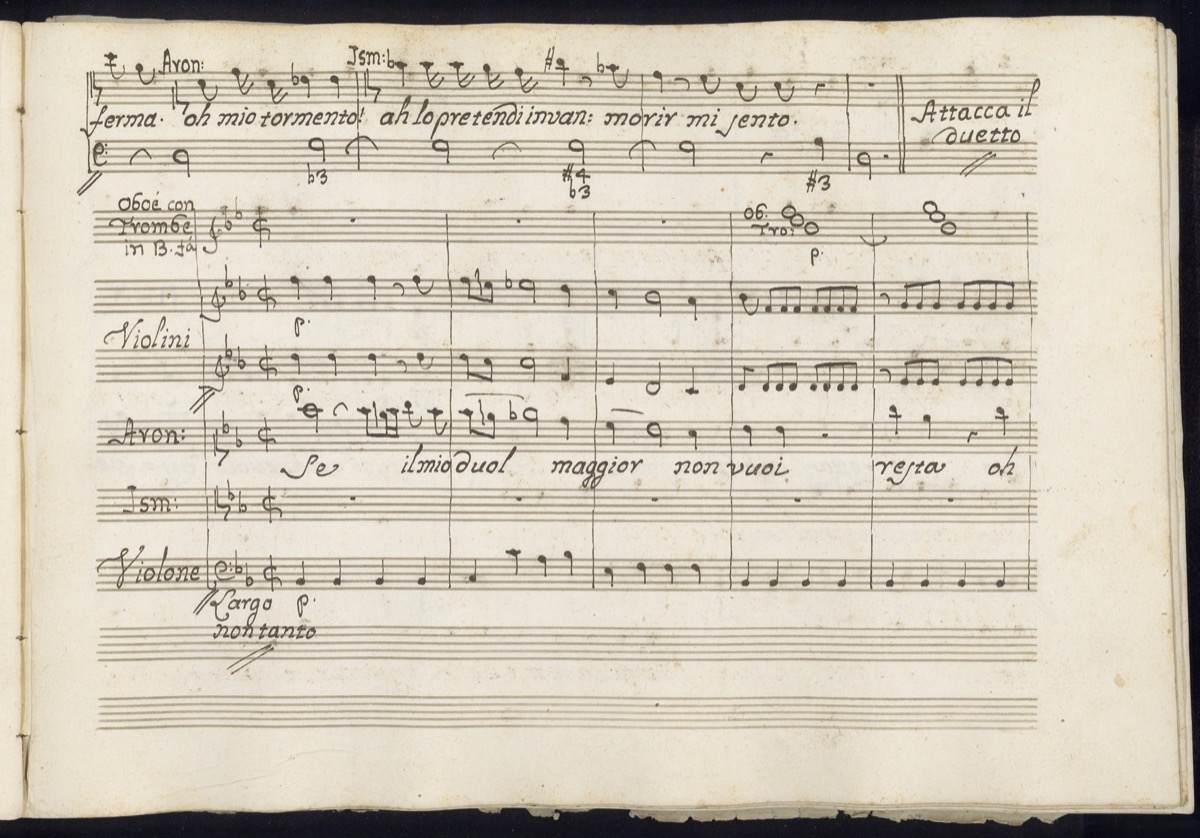 Aron: Ism:
ferma. oh mio tormento! ah lo pretendi invan: morir mi sento. Attacca il
duetto
b3 #4 #3
b3
Oboé con
Trombe
in B. fá
Ob:
Tro:
p.
p.
Violini
p.
Aron:
Se il mio duol maggior non vuoi resta oh
Ism:
Violone
Largo p.
non tanto